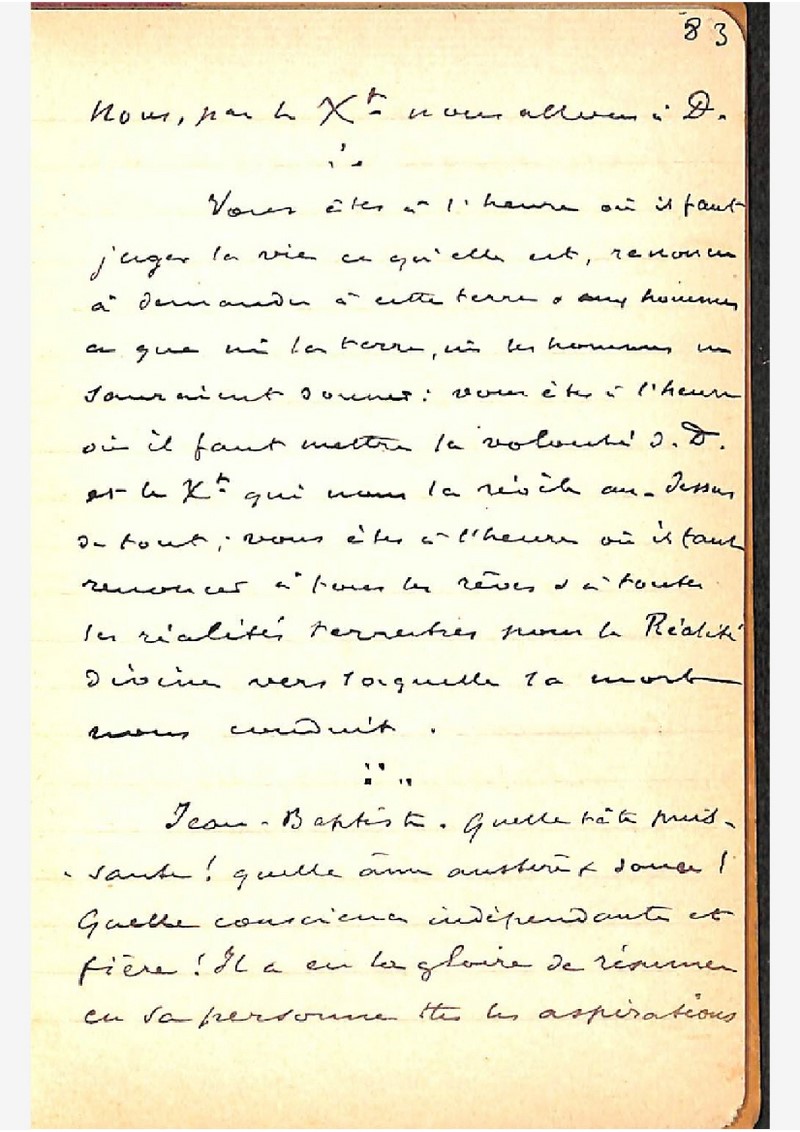 83
Nous, par le Xt nous allons à D.
Vous êtes à l'heure où il faut
juger la vie ce qu'elle est, renoncer
à demander à cette terre & aux hommes
ce que ni la terre, ni les hommes ne
sauraient donner : vous êtes à l'heure
où il faut mettre la volonté d. D.
et le Xt qui nous la révèle au-dessus
de tout ; vous êtes à l'heure où il faut
renoncer à tous les rêves & à toutes
les réalités terrestres pour la Réalité
divine vers laquelle la mort
nous conduit.
Jean-Baptiste. Quelle tête puis-
-sante ! quelle âme austère & douce !
Quelle conscience indépendante et
fière ! Il a eu la gloire de résumer
en sa personne ttes les aspirations